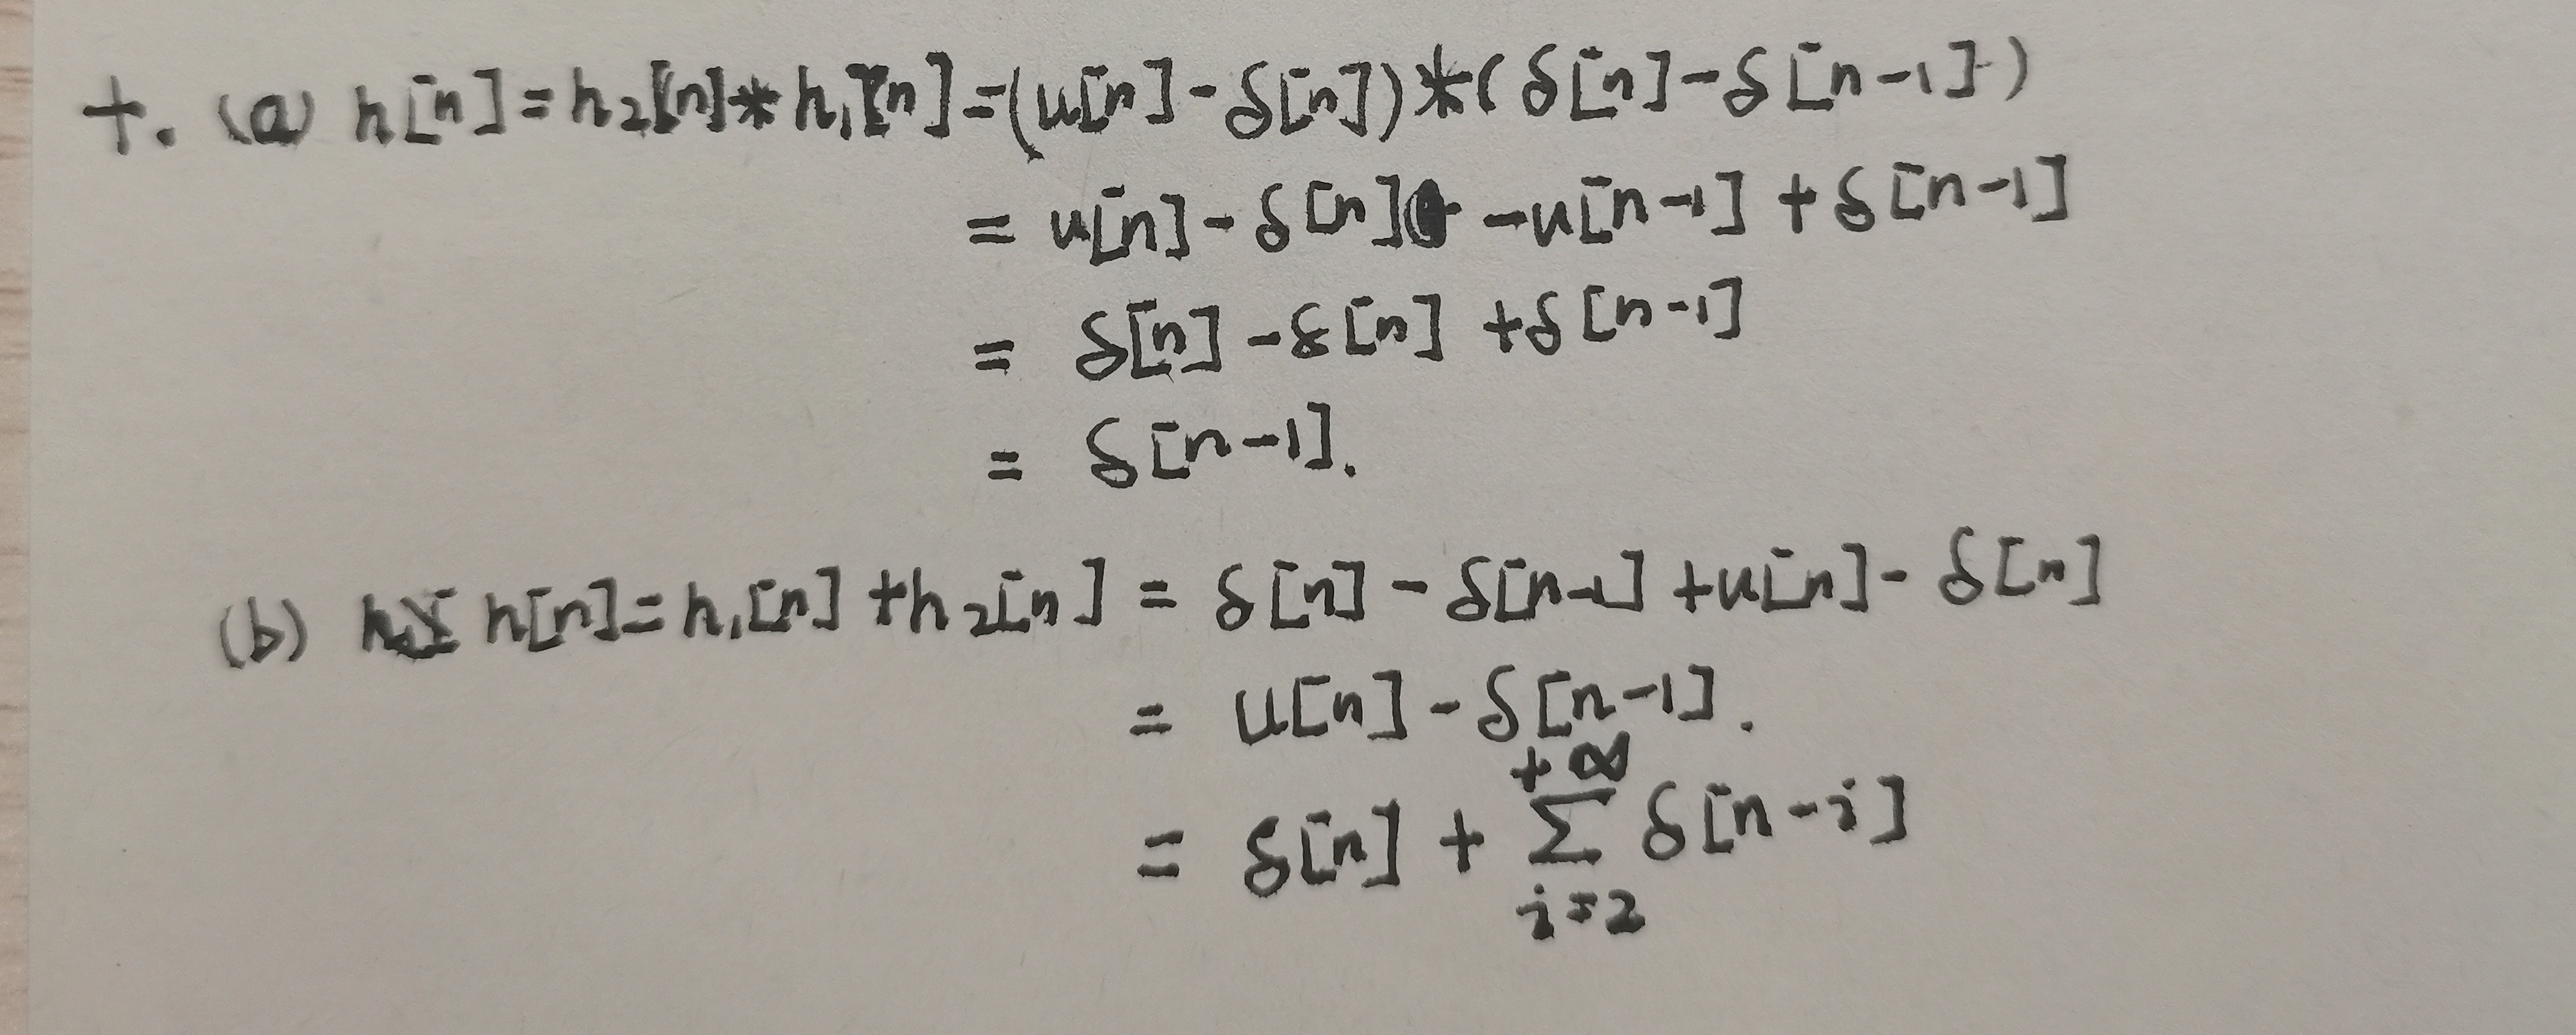 十. (a) h[n]=h₂[n]*h₁[n]=(u[n]-δ[n])*(δ[n]-δ[n-1])
= u[n]-δ[n] -u[n-1]+δ[n-1]
= δ[n]-δ[n]+δ[n-1]
= δ[n-1].
(b) h[n]=h₁[n]+h₂[n]=δ[n]-δ[n-1]+u[n]-δ[n]
= u[n]-δ[n-1].
= δ[n]+∑_{i=2}^{+∞} δ[n-i]